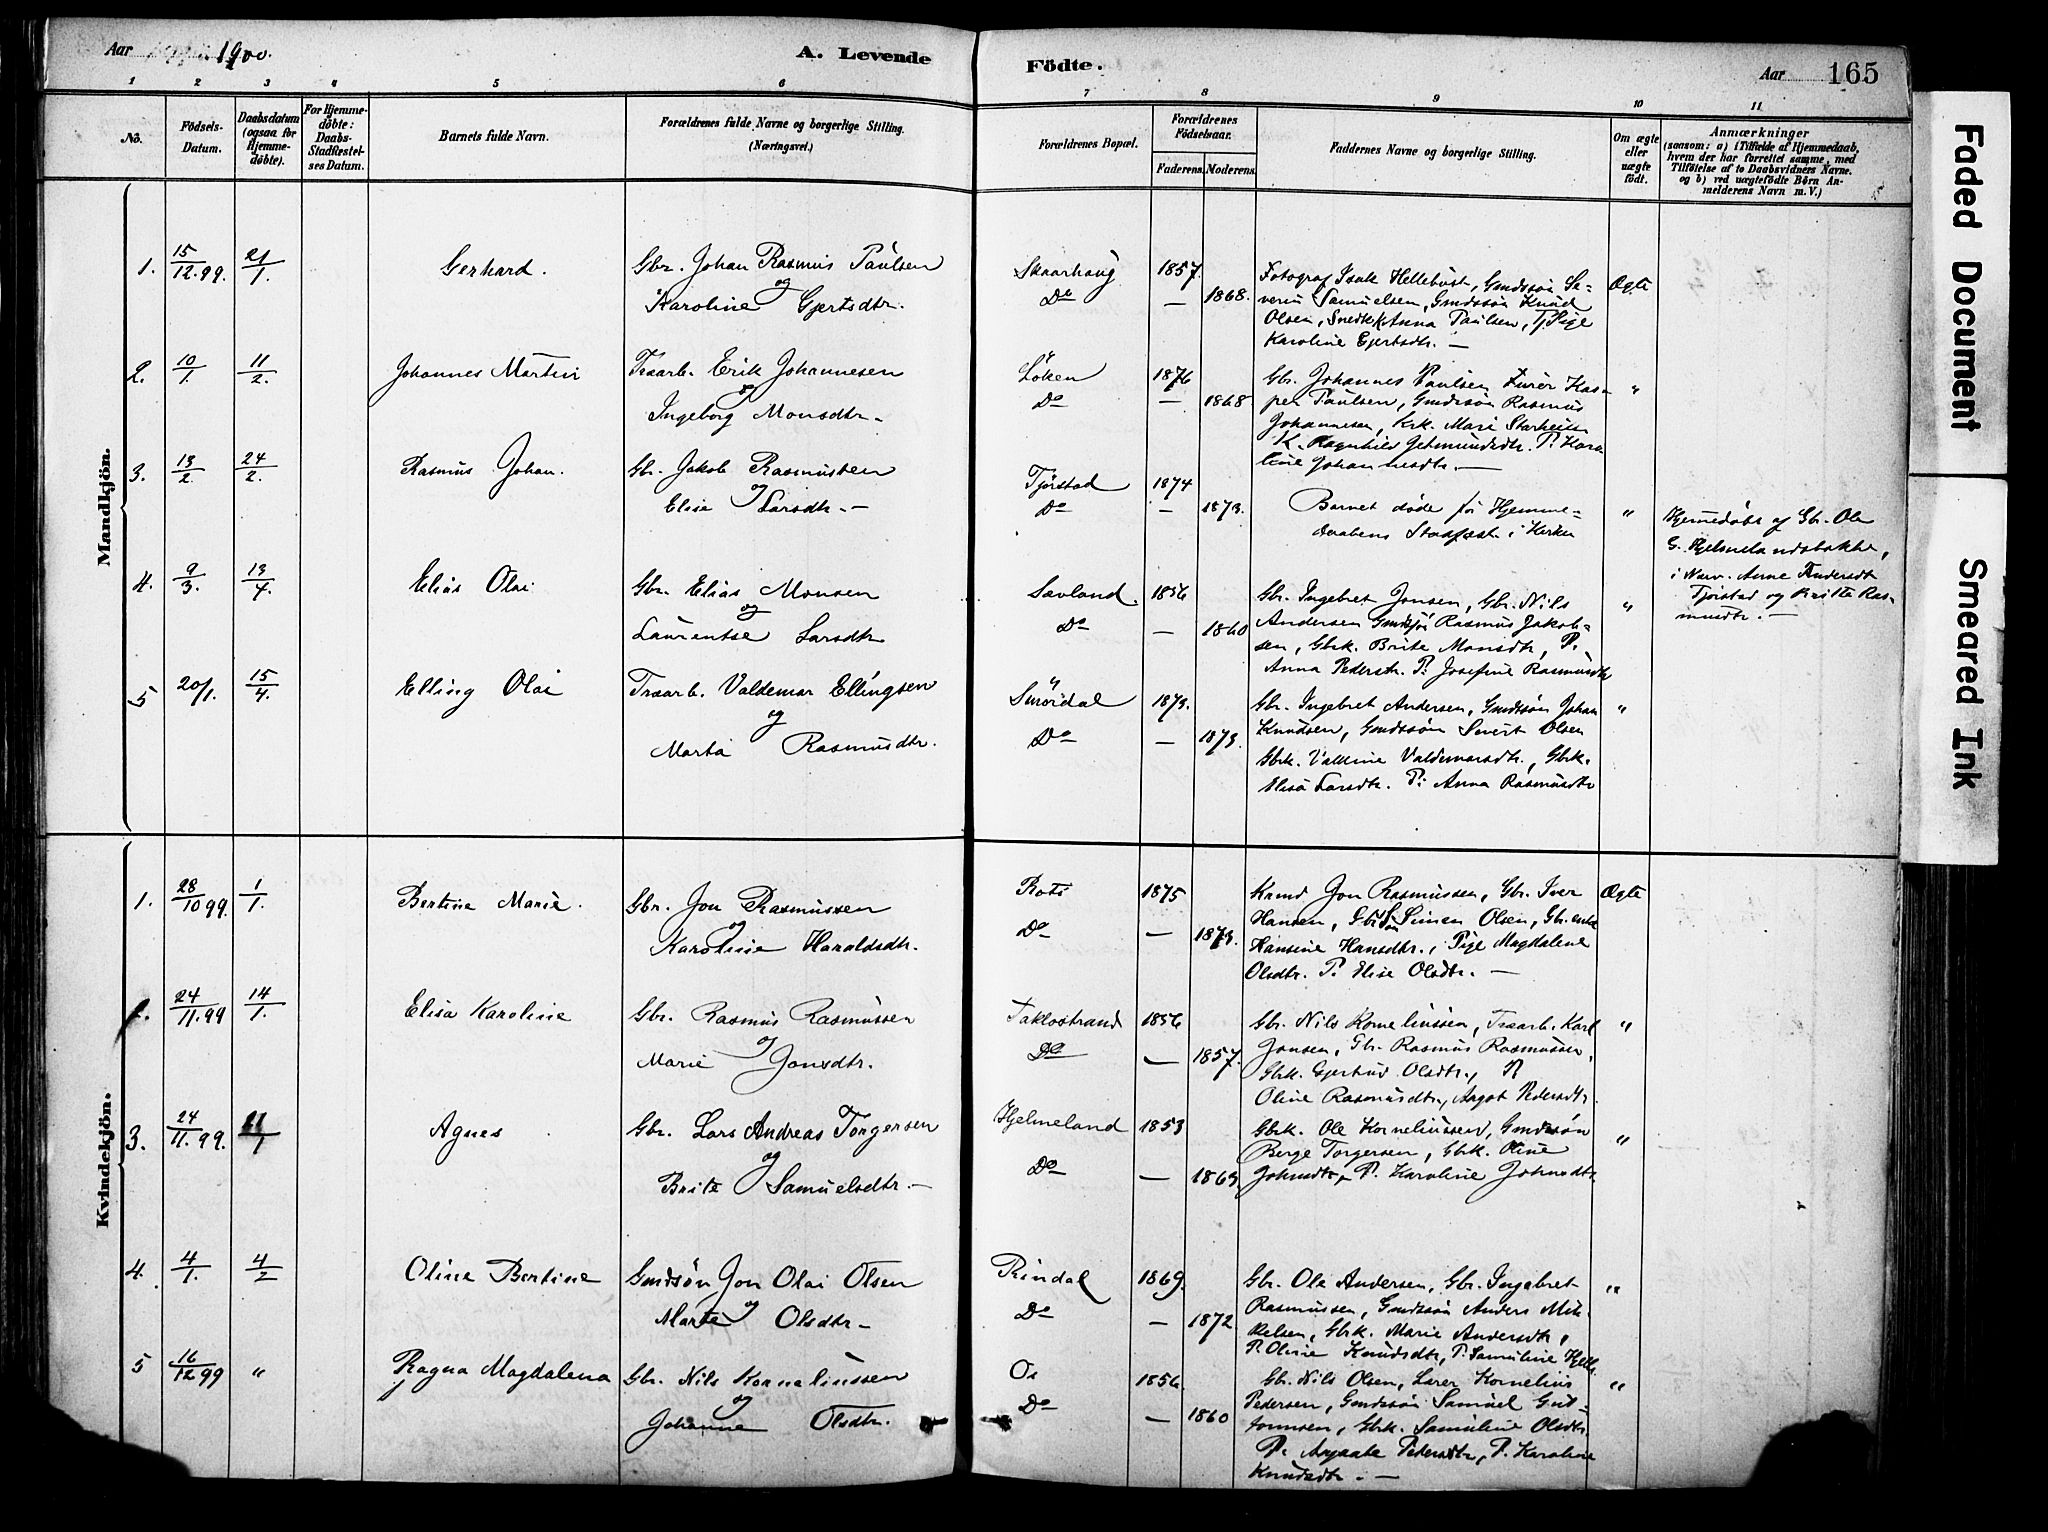 Aar 1900.
A. Levende
Födte.
Aar 165
1 2 3 4 5 6 7 8 9 10 11
No.
Födsels-
Datum.
Daabsdatum
(ogsaa for
Hjemme-
døbte).
For Hjemme-
døbte:
Daabs-
Stadfæstel-
ses Datum.
Barnets fulde Navn.
Forældrenes fulde Navne og borgerlige Stilling.
(Næringsvei.)
Forældrenes Bopæl.
Forældrenes
Födselsaar.
Faderens. Moderens.
Faddernes Navne og borgerlige Stilling.
Om ægte
eller
uægte
födt.
Anmærkninger
(saasom: a) i Tilfælde af Hjemmedaab,
hvem der har forrettet samme, med
Tilföielse af to Daabsvidners Navne.
og b) ved uægtefödte Börn An-
melderens Navn m. V.)
Mandkjön.
1. 15/12.99. 21/1. Gerhard. Gbr. Johan Rasmus Paulsen
og
Karoline Gjertsdtr.
Skaarhaug 1857.
Do — 1868.
Fotograf Isak Hellebust, Gmdssön Se-
verin Samuelsen, Gmdssön Knud
Olsen, Snedkk Anna Paulsen, Tj. Pige
Karoline Gjertsdtr. —
Ægte
2. 10/1. 11/2. Johannes Martin Træarb. Erik Johannesen
og
Ingeborg Monsdtr. -
Löken 1876
Do — 1868
Gbr. Johannes Paulsen Lærer Kas-
per Paulsen, Gmdssön Rasmus
Johannesen, Krk. Mari Starheim
K. Ragnhild Jetmundsdtr. P. Karo
line Johannesdtr. —
"
3. 13/2. 24/2. Rasmus Johan. Gbr. Jakob Rasmussen
og
Elise Larsdtr. —
Tjørstad 1874
Do — 1873.
Barnet døde før Hjemme-
daabens Stadfæst. i Kirken
"
Hjemmedöbt af Gb. Ole
G. Hjelmelandsbakke,
i Nærv. Anne Andersdtr
Tjørstad og Britte Ras-
musdtr. —
4. 9/3. 13/4. Elias Olai Gbr. Elias Monsen
og
Laurentse Larsdtr
Sævland. 1856
Do — 1860
Gbr. Ingebret Jonsen, Gbr. Nils
Andersen Gmdssön Rasmus Jakob-
sen, Gbrk. Brite Monsdtr, P.
Anna Pedersdtr. P: Josefine Rasmusdtr
"
5 20/1. 15/4. Elling Olai Træarb. Valdemar Ellingsen
og
Marta Rasmusdtr.
Smørdal 1873.
Do — 1873.
Gbr. Ingebret Andersen, Gmdssön Johan
Knudsen, Gmdssön Sivert Olsen
Gbrk. Valdemarsdtr., Gbrk.
Elisa Larsdtr. P: Anna Rasmusdtr
"
Kvindekjön.
1. 28/10 99. 1/1. Bertine Marie. Gbr. Jon Rasmussen
og
Karoline Haraldsdtr.
Rots 1875
Do — 1873.
Krmd Jon Rasmussen, Gbr. Iver
Hansen, Gbrs Sön Simen Olsen, Gbr. enke
Hansine Hansdtr., Pige Magdalene
Olsdtr. P. Elise Olsdtr. —
Ægte
2. 24/11.99 14/1. Elisa Karoline Gbr. Rasmus Rasmussen
og
Marie Jonsdtr.
Taklostrand 1856
Do — 1857.
Gbr. Nils Korneliussen, Træarb. Karl
Jonsen, Gbr. Rasmus Rasmussen.
Gbrk. Gjertrud Olsdtr., P.
Oline Rasmusdtr, Aagot Pedersdtr.
"
3. 24/11.99. 21/1 Agnes Gbr. Lars Andreas Torgersen
og
Brite Samuelsdtr. —
Hjelmeland 1853
Do — 1863.
Gbrk. Ole Korneliussen, Gmdssön
Berge Torgersen, Gbrk. Oline
Johnsdtr, P. Karoline Johnsdtr.
"
4. 4/1. 4/2 Oline Bertine Gmdsön Jon Olai Olsen
og
Marte Olsdtr —
Rindal 1869.
Do — 1872
Gbr. Ole Andersen, Gbr. Ingebret
Rasmussen, Gmdssön Anders Mik-
kelsen, Gbrk. Marie Andersdtr,
P. Oline Knudsdtr, P. Samuline
"
5 16/12 99 " Ragna Magdalena Gbr. Nils Korneliussen
og
Johanne Olsdtr.
Os 1856.
Do — 1860
Gb. Nils Olsen, Lærer Kornelius
Pedersen, Gmdssön Samuel Gut-
tormsen, Gbrk. Samuline Olsdtr
P. Pedersdtr, P. Karoline
Knudsdtr. —
"
Faded Document
Smeared Ink